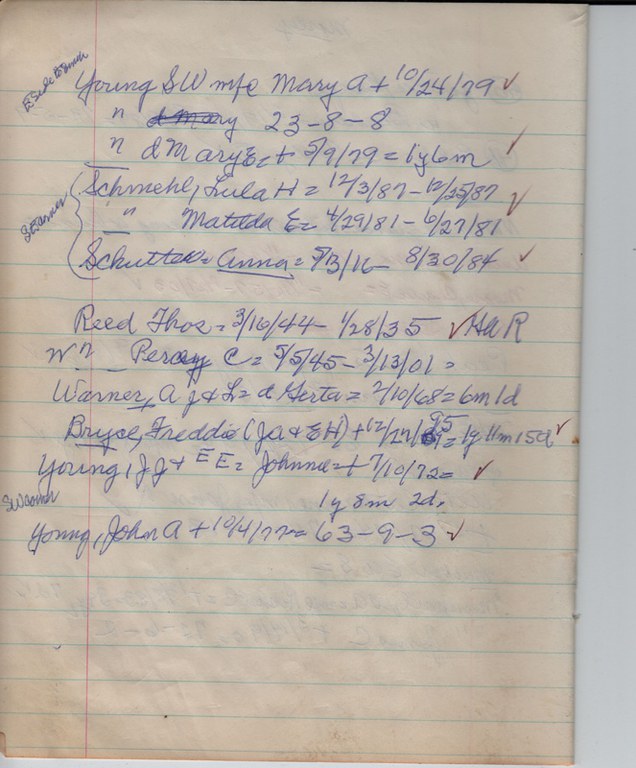 Young SW mfe Mary A + 10/24/79 ✓
" d Mary 23-8-8
" d Mary E = + 5/9/79 = 1y6m ✓
Schmehl, Lula H = 12/3/87 - 12/25/87
" Matilda E = 4/29/81 - 6/27/81 ✓
SE corner
= Anna = 5/3/16 - 8/30/84 ✓
Reed Thos = 3/16/44 - 1/28/35 ✓ H & R
W " Percey C = 5/5/45 - 3/13/01 =
Warner, A J & L = d Gerta = 2/10/68 = 6m 1d
Bryce, Freddie (JA & EH) + 12/27/ 95 = 1y 11m 15d ✓
Young, J J & E E = Johnnie = + 7/10/72 = ✓
1y 8m 2d.
SW corner
Young, John A + 10/4/77 = 63-9-3 ✓